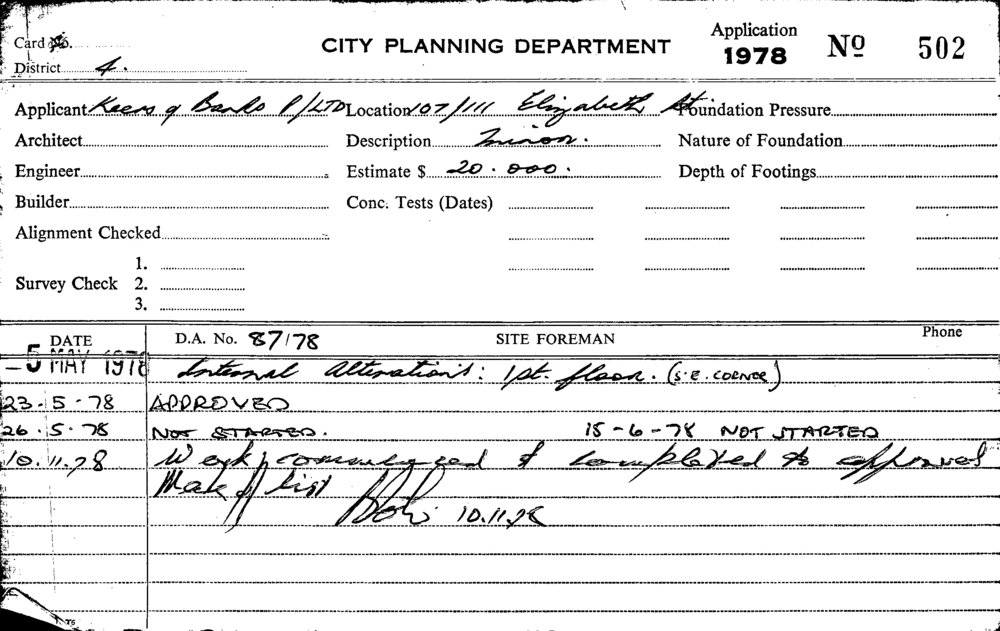 Card No.
CITY PLANNING DEPARTMENT
Application
1978 Nº 502
District 4.
Applicant Keers & Banks P/LTD Location 107/111 Elizabeth St Foundation Pressure
Architect Description Minor. Nature of Foundation
Engineer Estimate $ 20.000. Depth of Footings
Builder Conc. Tests (Dates)
Alignment Checked
1.
Survey Check 2.
3.
DATE D.A. No. 87/78 SITE FOREMAN Phone
-5 MAY 1978 Internal Alterations: 1st. floor. (S.E. CORNER)
23.5.78 APPROVED
26.5.78 NOT STARTED. 15-6-78 NOT STARTED
10.11.78 Work commenced & completed to approval
Mark off list 10.11.78